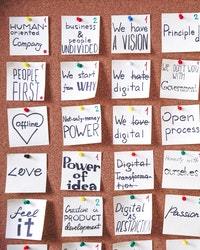 HUMAN-
ORIENTED
COMPANY
2
business
&
people
UNDIVIDED
1
We have
A VISION
2
Principle
PEOPLE
FIRST
We start
from WHY
We hate
digital
WE DON'T WORK
WITH
Government
offline
Not-only-money
POWER
We love
digital
Open
process
LOVE
Power of
idea
Digital
Transforma-
tion
Honesty with
ourselves
Feel
it
Creative in
PRODUCT
DEVELOPMENT
Digital
AS
Passion